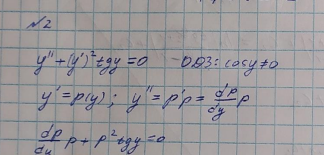 №2
y'' + (y')² tgy = 0 ОДЗ: cosy ≠ 0
y' = p(y); y'' = p'p = dp/dy p
dp/dy p + p² tgy = 0